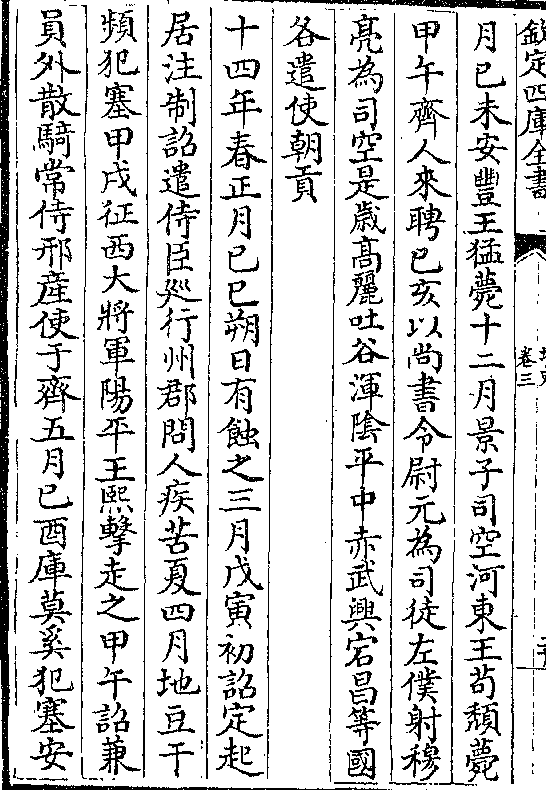 欽定四庫全書
北史
卷三
月己未安豐王猛薨十二月景子司空河東王苟頹薨
甲午齊人來聘己亥以尚書令尉元為司徒左僕射穆
亮為司空是歲高麗吐谷渾陰平中赤武興宕昌等國
各遣使朝貢
十四年春正月己巳朔日有蝕之三月戊寅初詔定起
居注制詔遣侍臣廵行州郡問人疾苦夏四月地豆干
頻犯塞甲戌征西大將軍陽平王熙擊走之甲午詔兼
員外散騎常侍邢産使于齊五月己酉庫莫奚犯塞安